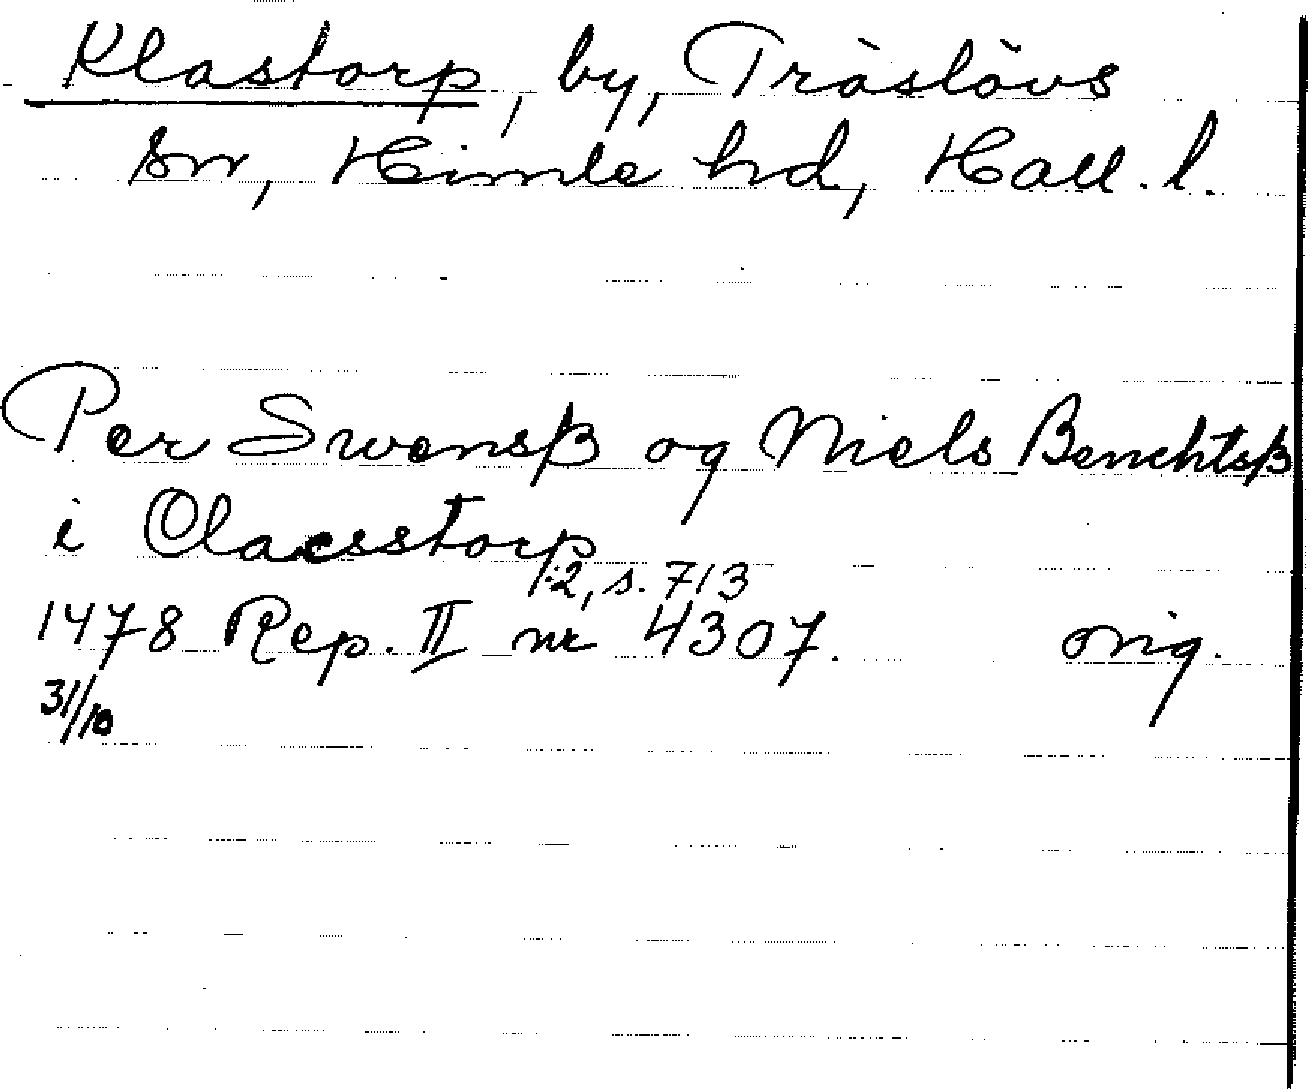 Klastorp, by, Träslövs
sn, Himle hd, Hall. l.
Per Swensß og Niels Benchtsß
i Clacsstorp
1:2, s. 713
1478 Rep. II nr 4307. orig.
31/10